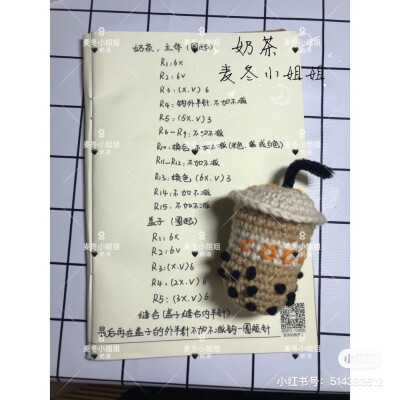 奶茶
麦冬小姐姐
奶茶,主体(圈起)
R1:6X
R2:6V
R3:(X.V)6
R4:钩外半针不加不减
R5:(5X.V)3
R6-R9:不加不减
R10:换色,不加不减
R11-R12:不加不减
R13:换色(6X.V)3
R14:不加不减
R15:不加不减
盖子(圈起)
R1:6X
R2:6V
R3:(X.V)6
R4:(2X.V)6
R5:(3X.V)6
缝合(盖子缝合内半针)
最后再在盖子的外半针不加不减钩一圈短针
小红书
小红书号:514363512